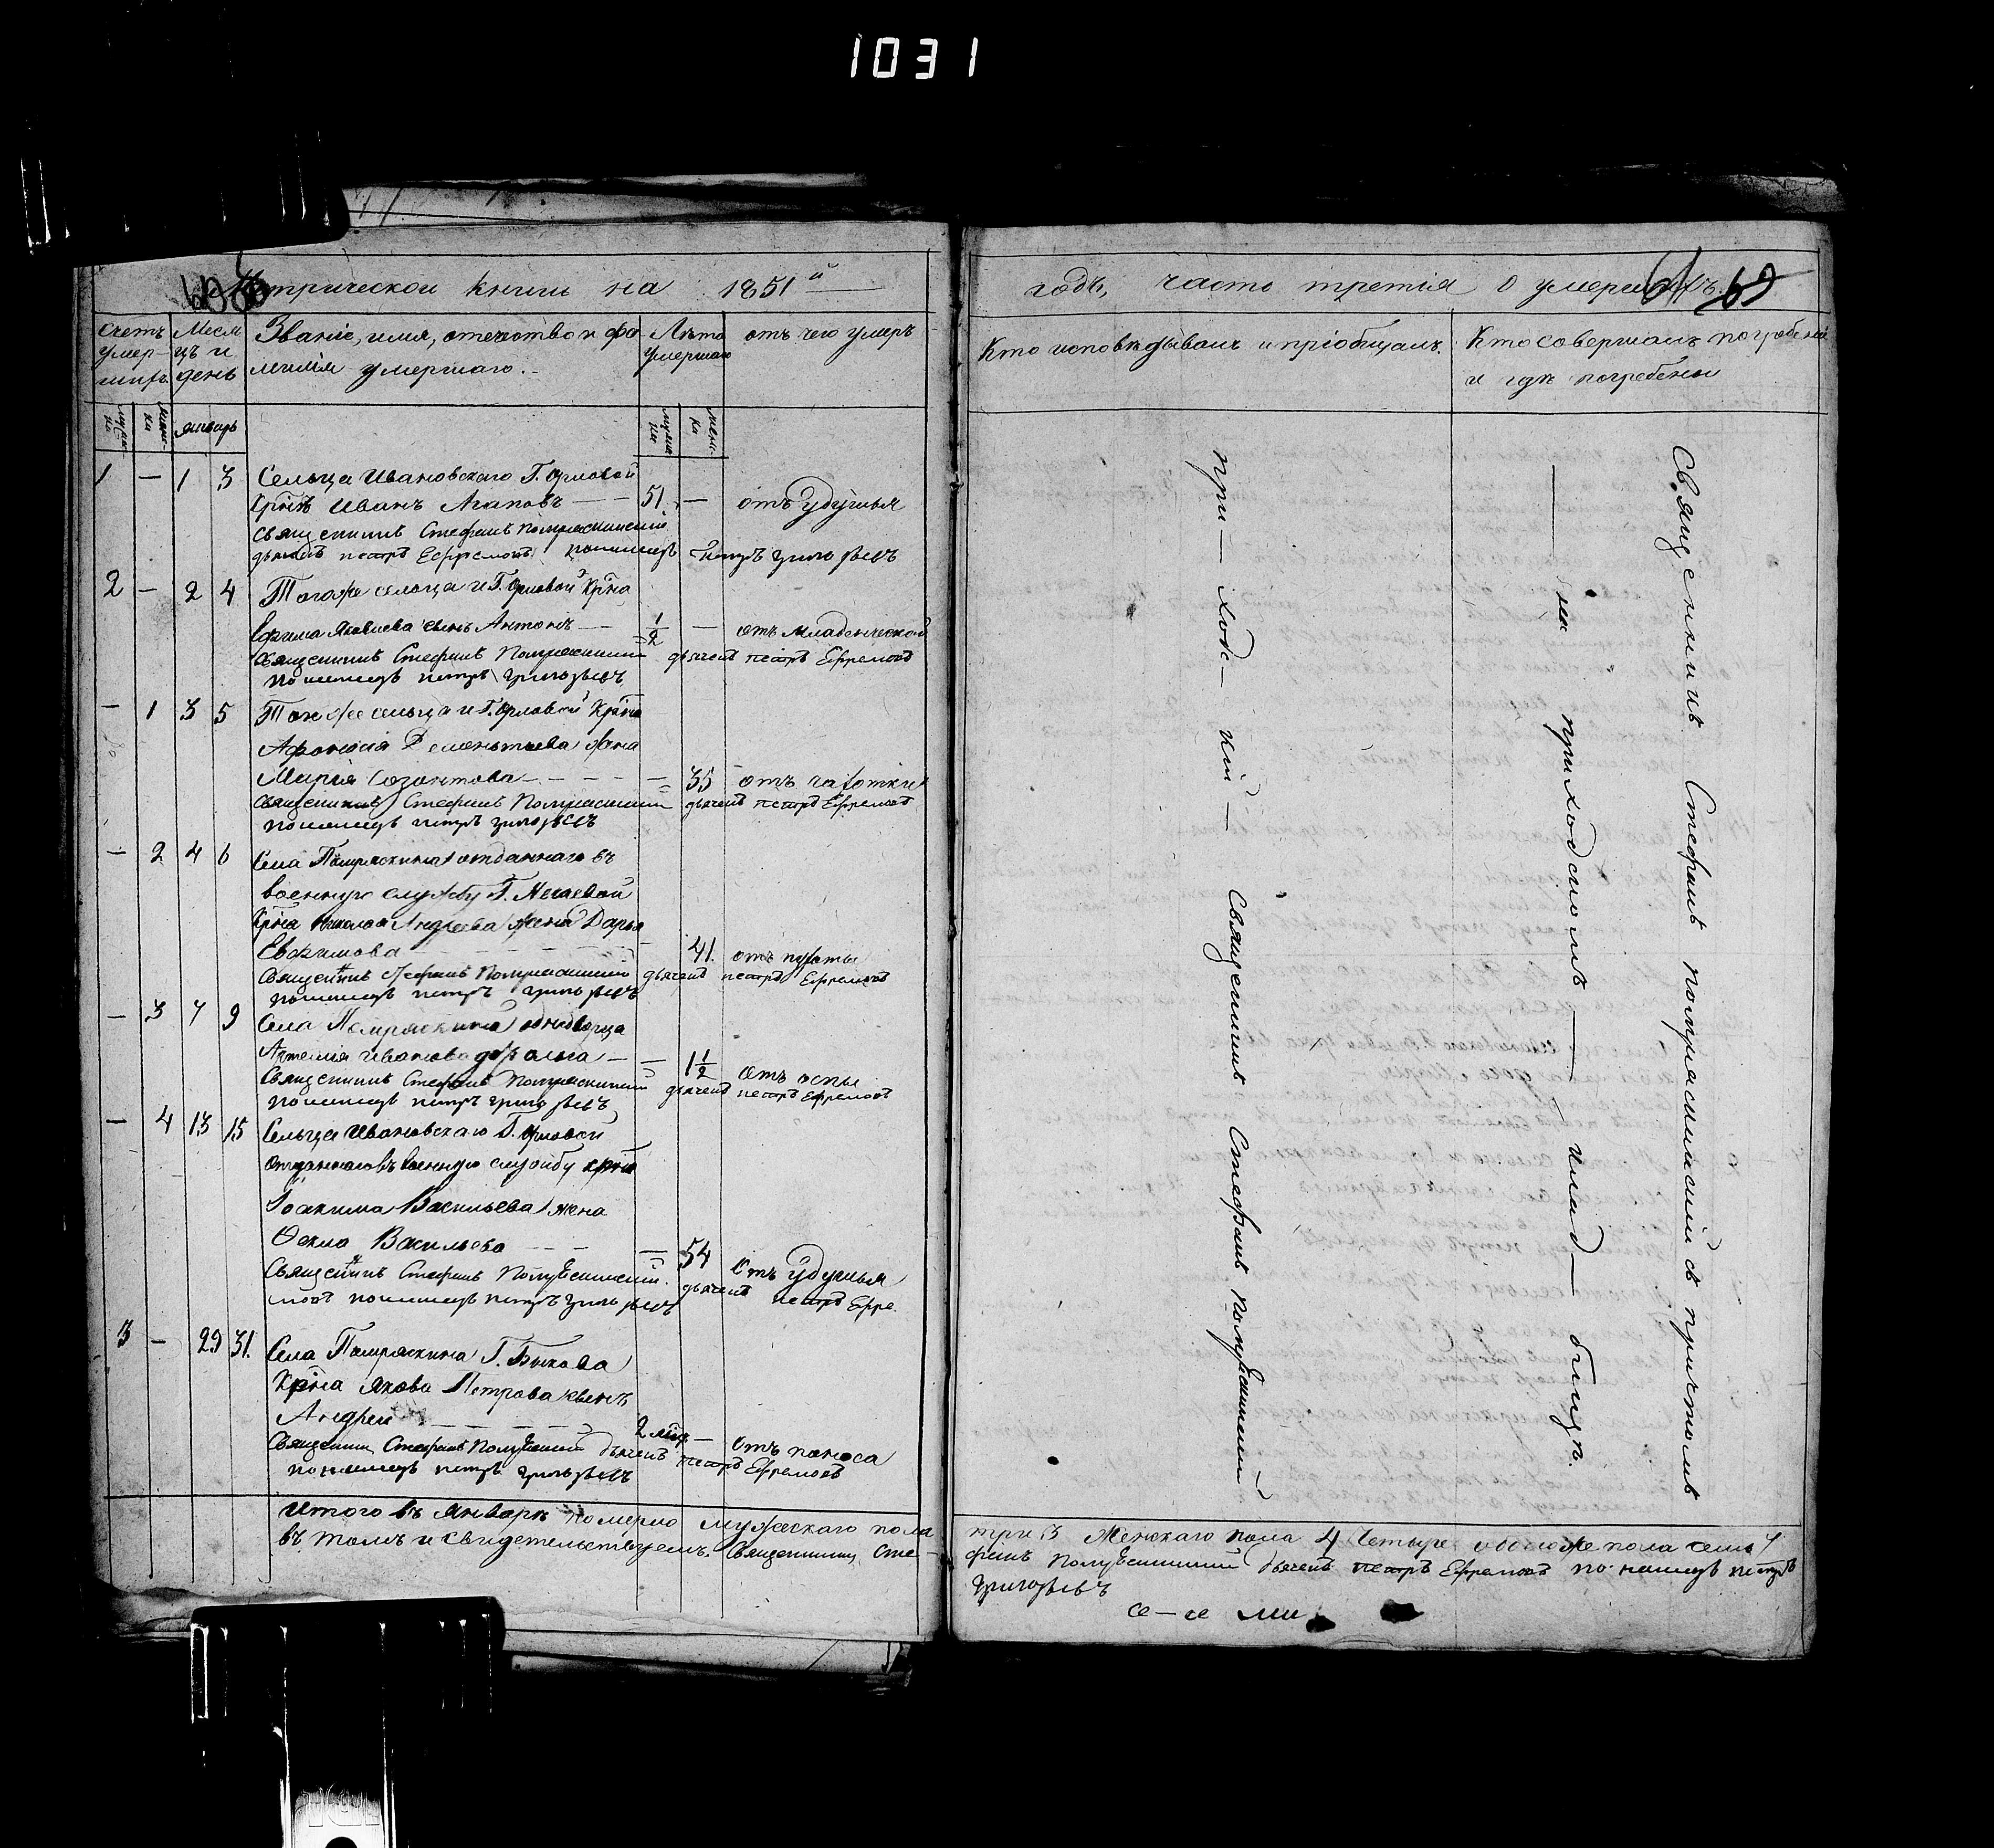 1031
Метрической книги на 1851й
Счетъ умер-шихъ
Месяцъ и день
Званіе, имя, отечество и фамилія умершаго.
Лѣта умершаго
отъ чего умеръ
мужска
женска
январь
мужска
женска
1 — 1 3 Сельца Ивановскаго Г. Орловой
Крнъ Иванъ Агаповъ — — 51 — отъ удушья
Священникъ Стефанъ
дьячекъ петръ Ефремовъ пономарь петръ григорьевъ
2 — 2 4 Тогоже сельца и Г. Орловой Крна
Ефима Яковлева сынъ Антонъ — 1/2 — отъ младенческой
Священникъ Стефанъ дьячекъ петръ Ефремовъ
пономарь петръ григорьевъ
— 1 3 5 Тогоже сельца и Г. Орловой Крна
Афонасія Дементьева жена
Марія Созонтова — — — — 35 отъ чахотки
Священникъ Стефанъ дьячекъ петръ Ефремовъ
пономарь петръ григорьевъ
— 2 4 6 Села отданнаго въ
военную службу Г. Нечаевой
Крна Николая Андреева жена Дарья
Евфимова — 41. отъ
Священникъ Стефанъ дьячекъ петръ Ефремовъ
пономарь петръ григорьевъ
— 3 7 9 Села однодворца
Артемія Иванова дочь — — 1 1/2 отъ оспы
Священникъ Стефанъ дьячекъ петръ Ефремовъ
пономарь петръ григорьевъ
— 4 13 15 Сельца Ивановскаго Г. Орловой
отданнаго въ военную службу крна
Іоакима Васильева жена
Ѳекла Васильева — — — 54 отъ удушья
Священникъ Стефанъ дьячекъ петръ Ефре-
мовъ пономарь петръ григорьевъ
3 — 29 31. Села Г. Быкова
Крна Якова Петрова сынъ
Андрей — 2 — отъ поноса
Священникъ Стефанъ дьячекъ петръ Ефремовъ
пономарь петръ григорьевъ
Итого въ Январѣ померло мужескаго пола
въ томъ и свидетельствуемъ. Священникъ Сте-
годъ, часть третія о умершихъ.
69
Кто исповѣдывалъ и пріобщалъ.
Кто совершалъ погребеніе
и гдѣ погребены
при — ход — кій — Священникъ Стефанъ
— на приходскомъ — — клад — бищѣ.
Священникъ Стефанъ съ причтомъ
три 3 Женскаго пола 4 четыре обоюже пола семь 7
фанъ дьячекъ петръ Ефремовъ пономарь петръ
григорьевъ